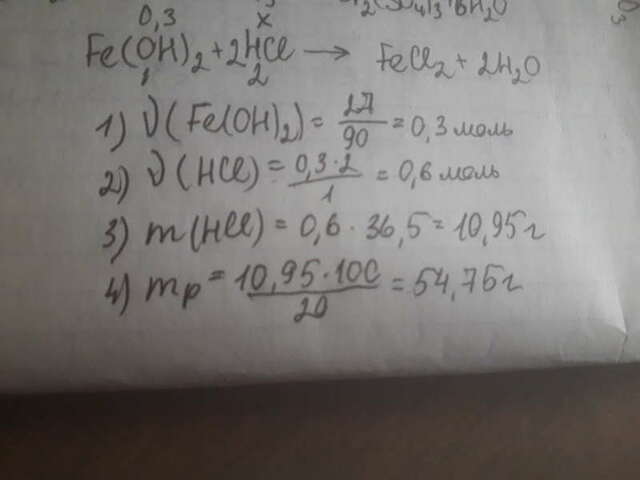 0,3 x
Fe(OH)2 + 2HCl → FeCl2 + 2H2O
1 2
1) ν(Fe(OH)2) = 27/90 = 0,3 моль
2) ν(HCl) = 0,3·2/1 = 0,6 моль
3) m(HCl) = 0,6 · 36,5 = 10,95 г
4) mр = 10,95·100/20 = 54,75 г